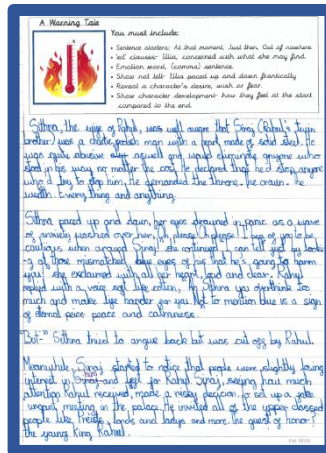 A Warning Tale
You must include:
• Sentence starters: At that moment, Just then, Out of nowhere
• 'ed' clauses- Illia, concerned with what she may find.
• Emotion word, (comma) sentence.
• Show not tell- Illia paced up and down frantically
• Reveal a character's desire, wish or fear.
• Show character development- how they feel at the start
compared to the end.
Sithna, the wife of Rahul, was well aware that Siraj (Rahul's twin
brother) was a man with a heart made of solid steel. He
was quite abusive aswell and would eliminate anyone who
stood in his way no matter the cost. He declared that he'd stop anyone
who'd try to stop him. He demanded the throne. The crown. The
wealth. Everything and anything.
Sithna paced up and down, her eyes drowned in panic as a wave
of anxiety washed over her. "Oh, please! Oh please! I beg of you to be
cautious when around Siraj!" she continued "I can tell just by look-
g at those mismatched blue eyes of his that he's going to harm
you" she exclaimed with all her heart, loud and clear. Rahul
replied with a voice soft like cotton, "Sithna you overthink too
much and make life harder for you. Not to mention blue is a sign
of eternal peace peace and calmness.
"But-" Sithna tried to argue back but was cut off by Rahul.
Meanwhile, Siraj started to notice that people were slightly losing
interest in him and for Rahul. Siraj, seeing how much
attention Rahul received, made a risky decision to set up a fake
urgent meeting in the palace. He invited all of the upper classed
people like Priests, lords and ladys and more, the guest of honor:
the young King Rahul.